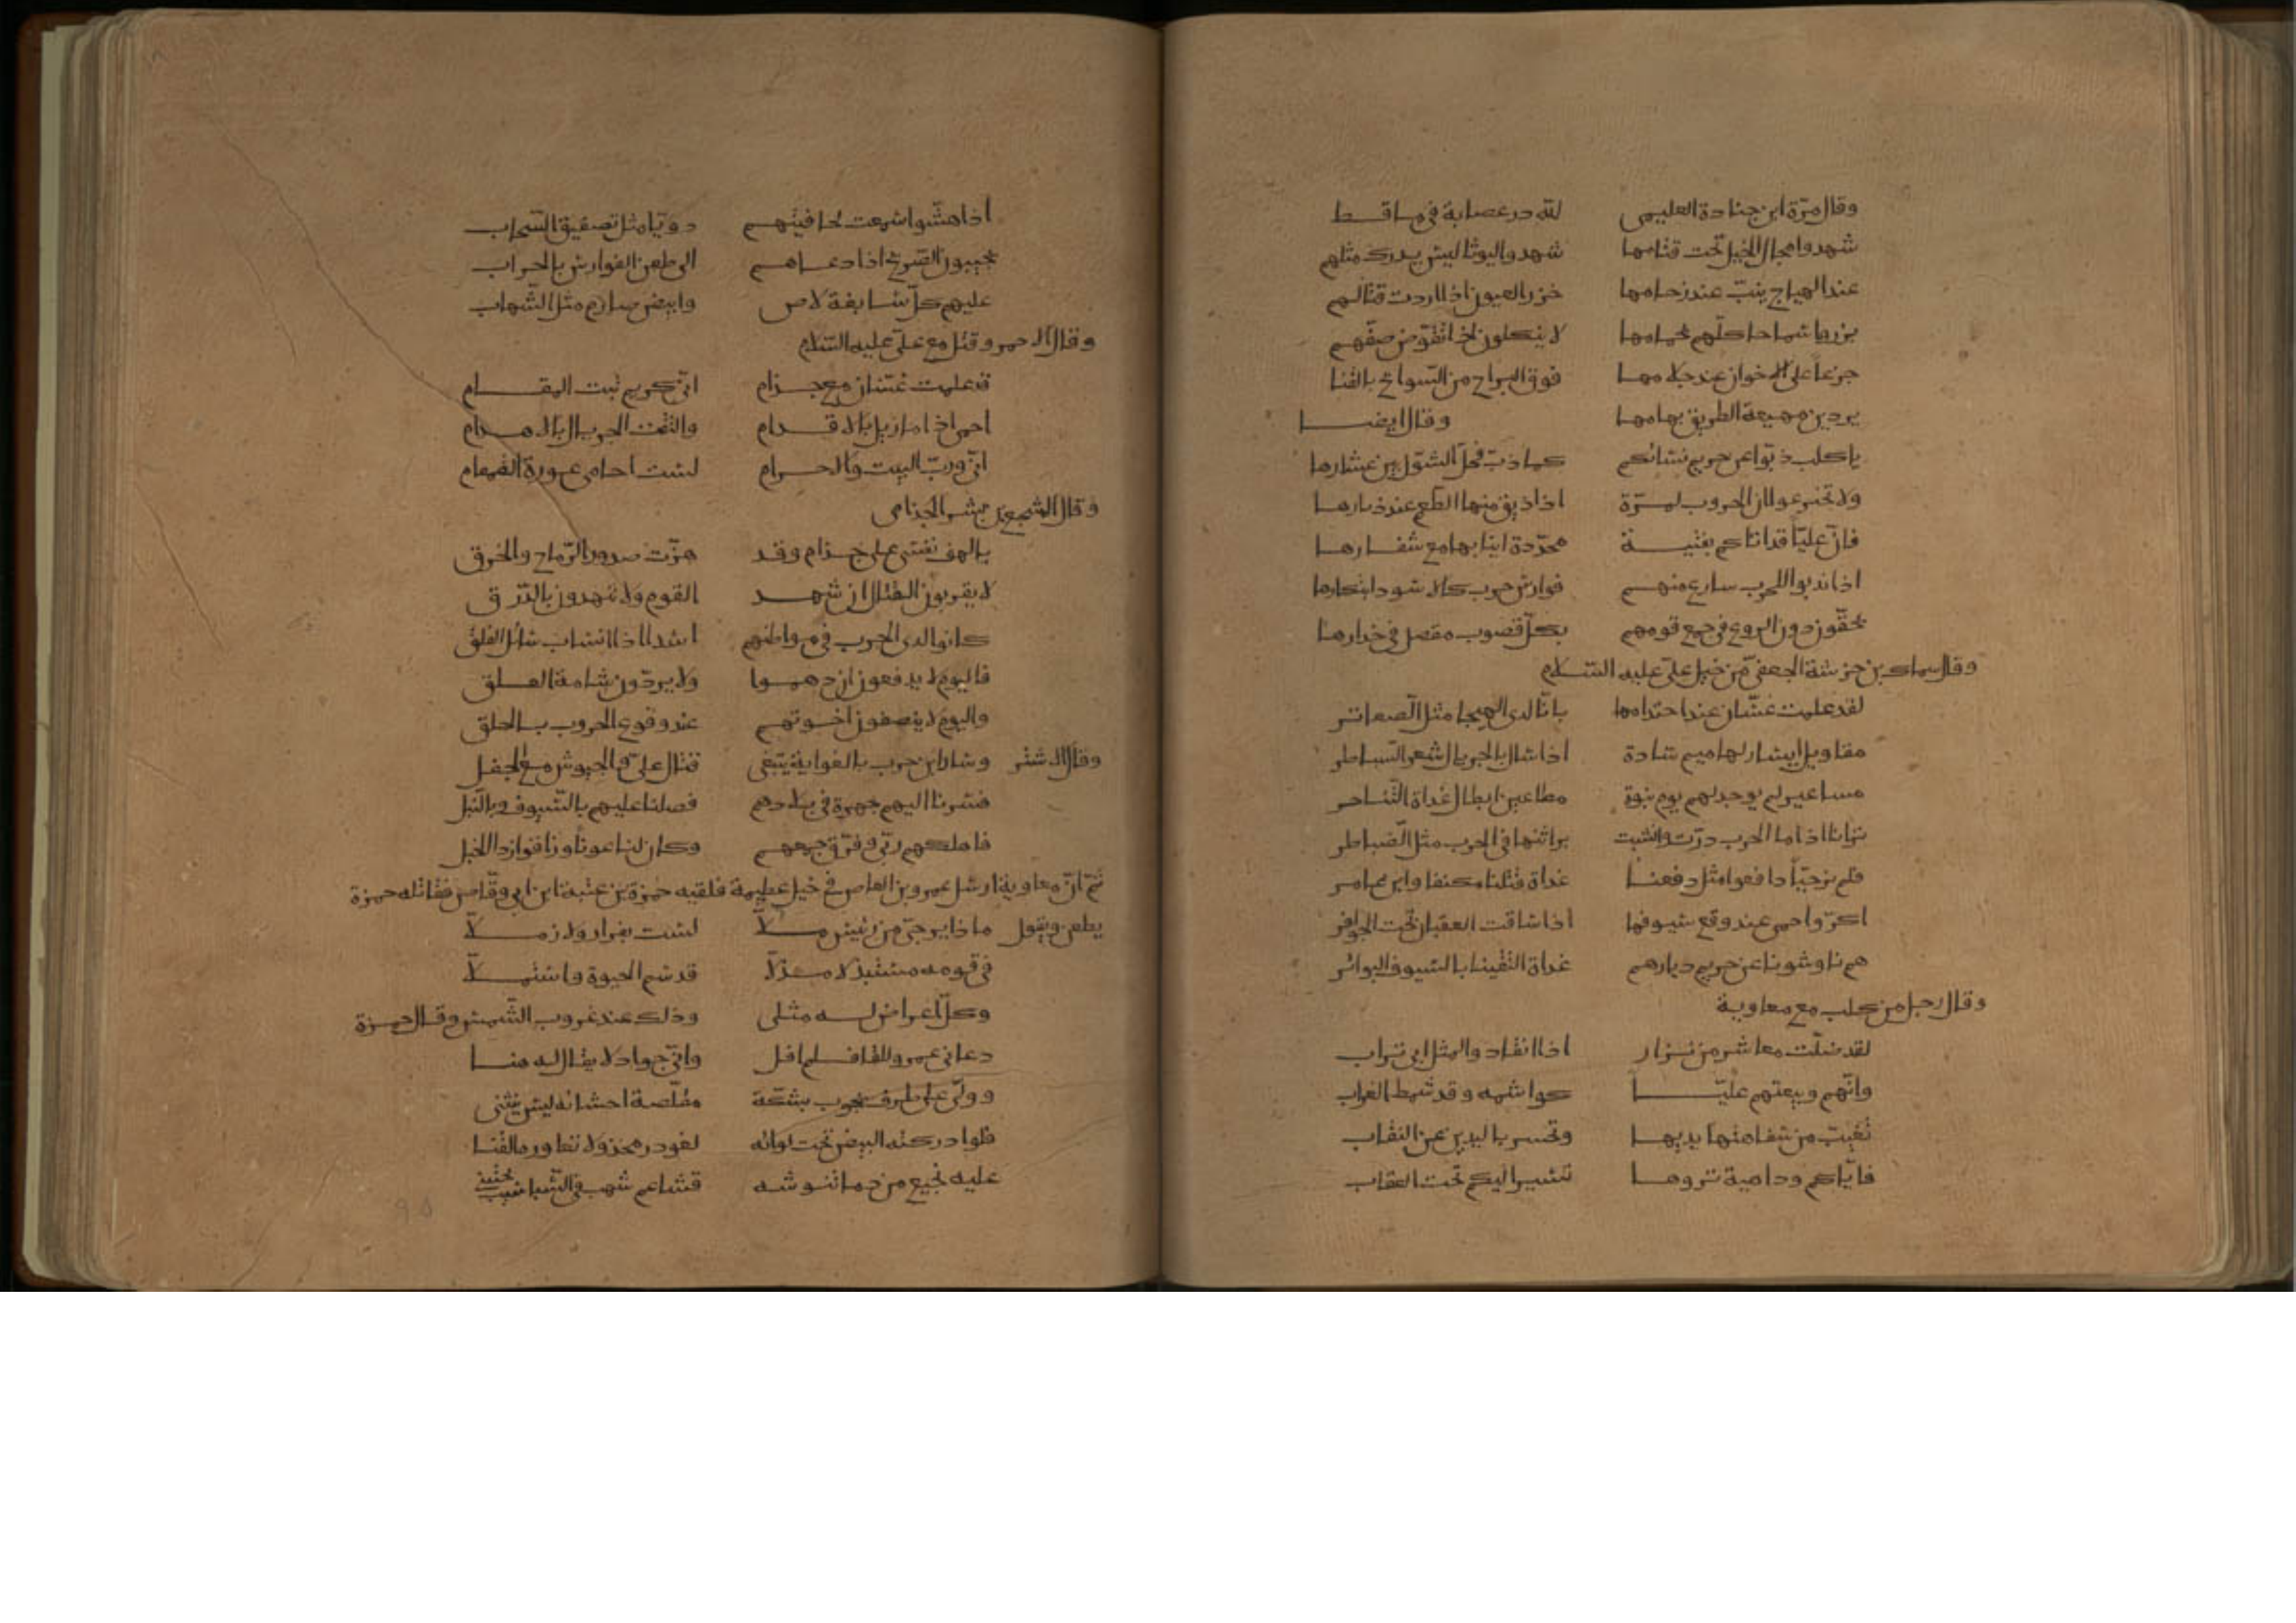 وقال مرّة ابن جنادة العليمي لله در عصابة في ماقط
شهدوا مجال الخيل تحت قتامها شهدوا ليوثا ليس يدرك مثلهم
عند الهياج يذبّ عند زحامها خزر العيون اذا اردت قتالهم
لا ينكلون اذا تقوّض صفّهم
جزعا على الاخوان عند جلامها فوق البراح من السوابح بالقنا
يردين مهيعة الطريق بهامها وقال ايضا
يا كلب ذبّوا عن حريم نسائكم كما ذبّ فحل الشول بين عشارها
ولا تجزعوا ان الحروب لمرّة اذا ذيق منها الطعم عند ذيارها
فانّ عليّا قد اتاكم بفتية محدّدة انيابها مع شفارها
اذا ندبوا للحرب سارع منهم فوارس حرب كالاسود ابتكارها
يخفّون دون الروع في جمع قومهم بكل قصوب مقصل في حذارها
وقال سماك بن خرشة الجعفي من خيل علي عليه السلام
لقد علمت غسّان عند احتدامها بانّا لدى الهيجا مثل السعائر
مقاويل ايسار لهاميم سادة اذا سال بالجريال شعر السباطر
مساعير لم يوجد لهم يوم نبوة مطاعين ابطال غداة التناحر
ترانا اذا ما الحرب درّت وانشبت براثنها في الحرب مثل الضباطر
فلم نر حيّا دافعوا مثل دفعنا غداة قتلنا مكنفا وابن عامر
اكرّ واحمى عند وقع سيوفها اذا ساقت العقبان تحت الحوافر
هم ناوشونا عن حريم ديارهم غداة التقينا بالسيوف البواتر
وقال رجل من كلب مع معاوية
لقد ضلّت معاشر من نزار اذا انقادوا لمثل ابي تراب
وانّهم وبيعتهم عليّا كواشمة وقد شمط الغراب
تغيّب من سفاهتها يديها وتحسر باليدين عن النقاب
فايّاكم وداهية نروها تسير اليكم تحت العقاب
اذا هشّوا سمعت لحافتيهم دويّا مثل تصفيق السحاب
يجيبون الصريخ اذا دعاهم الى طعن الفوارس بالحراب
عليهم كلّ سابغة دلاص وابيض صارم مثل الشهاب
وقال الاحمر وقتل مع علي عليه السلام
قد علمت غسّان مع جذام انّي كريم ثبت المقام
احمى اذا ما زيل بالاقدام والتقت الجريال بالاهدام
انّي وربّ البيت والحرام لست احامي عورة القمقام
وقال الشيخ بن بشر الجذامي
يا لهف نفسي على جذام وقد هزّت صدور الرماح والخرق
القوم ولا يهدون بالدرق
كانوا لدى الحرب في مواطنهم اسدا اذا انساب سائل الفلق
فاليوم لا يدفعون ان دهموا ولا يردّون شامة الغلق
واليوم لا ينصفون اخوتهم عند وقوع الحروب بالحلق
وقال الاشتر وسار ابن حرب بالغواية يبتغي قتال عليّ والجيوش مع الجفل
فسرنا اليهم جهرة في بلادهم فصلنا عليهم بالسيوف وبالنبل
فاهلكهم ربّي وفرّق جمعهم وكان لنا عونا وذاقوا ردا الخبل
ثم انّ معاوية ارسل عمرو بن العاص في خيل عظيمة فلقيه حمزة بن عتبة ابن ابي وقّاص فقاتله حمزة
يطعن ويقول ماذا يرجّى من رئيس ملّا لست بفرّار ولا زملّا
في قومه مستبدلا مدلّا قد سئم الحيوة واستملّا
وكلّ اعراض له مثلي وذلك عند غروب الشمس وقال حمزة
دعاني عمرو للقا فلم اقل وانّي جواد لا يقال له هنا
وولّى على طرف يجوب بشكّة مقلّصة احشائه ليس ينثني
فلو ادركته البيض تحت لوائه لغودر مجدولا تعاوره القنا
عليه نجيع من دماء تنوشه قشاعم شهب في السباسب تجتني